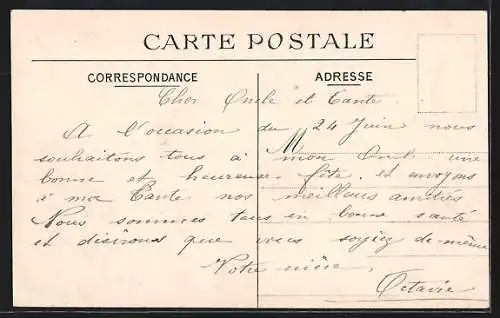 CARTE POSTALE
CORRESPONDANCE
ADRESSE
Cher Oncle et Tante.
A l'occasion du 24 Juin nous
M
souhaitons tous à mon Oncle une
bonne et heureuse fête. et envoyons
à ma Tante nos meilleurs amitiés
Nous sommes tous en bonne santé
et désirons que vous soyiez de même
Votre nièce,
Octavie